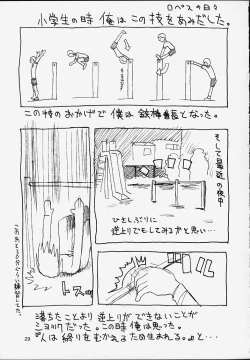 ロペスの日々
小学生の時 俺はこの技をあみだした。
この技のおかげで 僕は鉄棒長となった。
そして最近の夜中
ひさしぶりに
逆上りでもしてみるかと思い…
ズルル
ドスッ
このあと30分ぐらい練習してた。
落ちたことより逆上りができないことが
ショックだった。この時俺は思った。
「人は終りをむかえるため生まれる。」と…
29